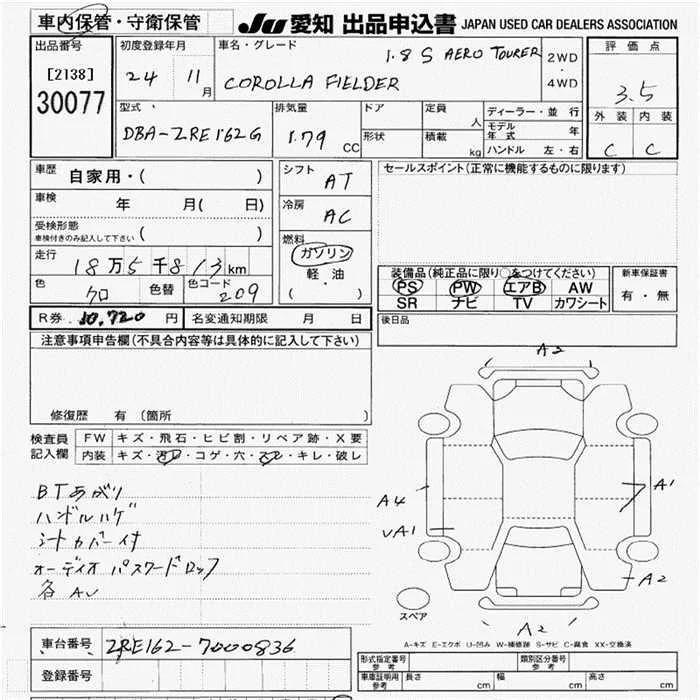 車内保管・守衛保管 JU 愛知 出品申込書 JAPAN USED CAR DEALERS ASSOCIATION
出品番号 [2138] 30077
初度登録年月 24 11月
車名・グレード 1.8 S AERO TOURER
COROLLA FIELDER
2WD ・ 4WD
評価点 3.5
外装 内装
C C
型式 DBA-ZRE162G
排気量 1.79 CC
ドア 形状
定員 人
積載 kg
ディーラー・並行
モデル年式 年
ハンドル 左・右
車歴 自家用・( )
車検 年 月( 日)
受検形態 ( )
車検付きのみ記入して下さい
走行 18万5千813km
色 クロ 色替 色コード 209
シフト AT
冷房 AC
燃料 ガソリン
軽・油
( ・ )
セールスポイント(正常に機能するものに限ります)
装備品(純正品に限り○をつけてください)
PS PW エアB AW
SR ナビ TV カワシート
新車保証書
有・無
R券 10,720 円 名変通知期限 月 日
後日品
注意事項申告欄(不具合内容等は具体的に記入して下さい)
修復歴 有 (箇所 )
検査員記入欄
FW キズ・飛石・ヒビ割・リペア跡・X要
内装 キズ・汚レ・コゲ・穴・スレ・キレ・破レ
BTあがり
ハンドルハゲ
シートカバー付
オーディオ パスワードロック
各AU
A2
A4
A1
VA1
A2
スペア
A2
A-キズ E-エクボ U-凹み W-補修跡 S-サビ C-腐食 XX-交換済
車台番号 ZRE162-7000836
登録番号
形式指定番号 参考 類別区分番号 参考
車庫証明用 参考 長さ cm 幅 cm 高さ cm